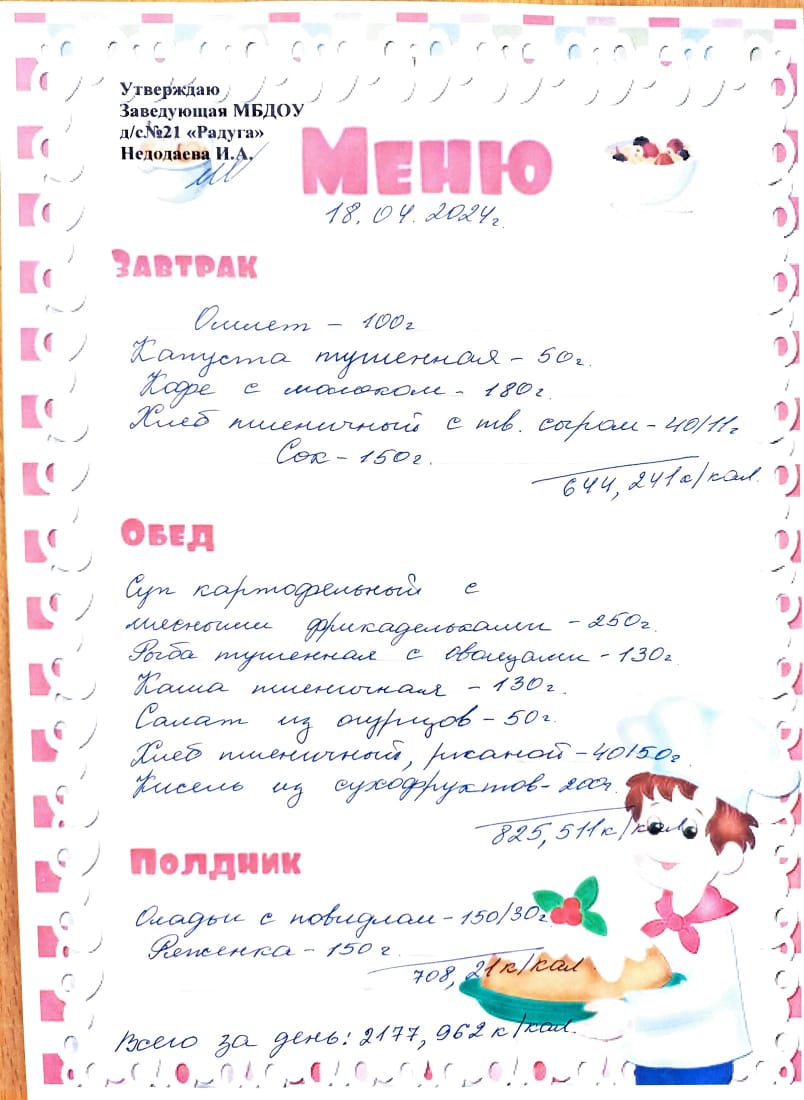 Утверждаю
Заведующая МБДОУ
д/с№21 «Радуга»
Недодаева И.А.
Меню
18.04.2024г.
Завтрак
Омлет - 100г
Капуста тушенная - 50г.
Кофе с молоком - 180г.
Хлеб пшеничный с тв. сыром - 40/11г
Сок - 150г.
644,241к/кал.
Обед
Суп картофельный с
мясными фрикадельками - 250г.
Рыба тушенная с овощами - 130г.
Каша пшеничная - 130г.
Салат из огурцов - 50г.
Хлеб пшеничный, ржаной - 40/50г.
Кисель из сухофруктов - 200г.
825,511к/кал.
Полдник
Оладьи с повидлом - 150/30г.
Ряженка - 150г.
708,21к/кал
Всего за день: 2177,962к/кал.